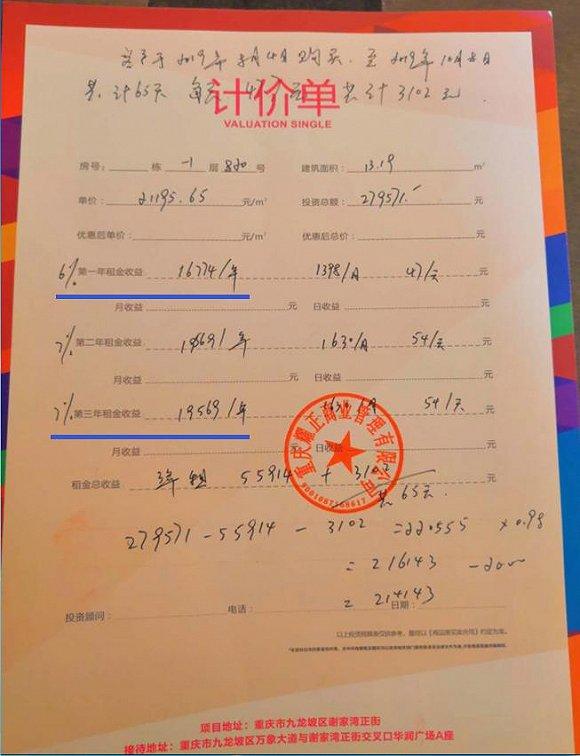 客户于2019年8月4日购买，至2019年10月8日
共计65天 每天 47元 共计3102元.
计价单
VALUATION SINGLE
房号：栋 -1 层 820 号 建筑面积：13.19 m²
单价：21195.65 元/m² 投资总额：279571.- 元
优惠后单价：元/m² 优惠后总价：元
6% 第一年租金收益 16774/年 1398/月 47/天 元
月收益 元 日收益 元
7% 第二年租金收益 19569/年 1630/月 54/天 元
月收益 元 日收益 元
7% 第三年租金收益 19569/年 1630/月 54/天 元
月收益 元 日收益 元
租金总收益 55914 + 3102 元
共65天
重庆耀正商业管理有限公司
279571-55914-3102=220555 ×0.98
=216143 -2000
=214143
投资顾问：电话：日期：
以上投资预算表仅供参考，最终以《商品房买卖合同》约定为准。
项目地址：重庆市九龙坡区谢家湾正街
接待地址：重庆市九龙坡区万象大道与谢家湾正街交叉口华润广场A座